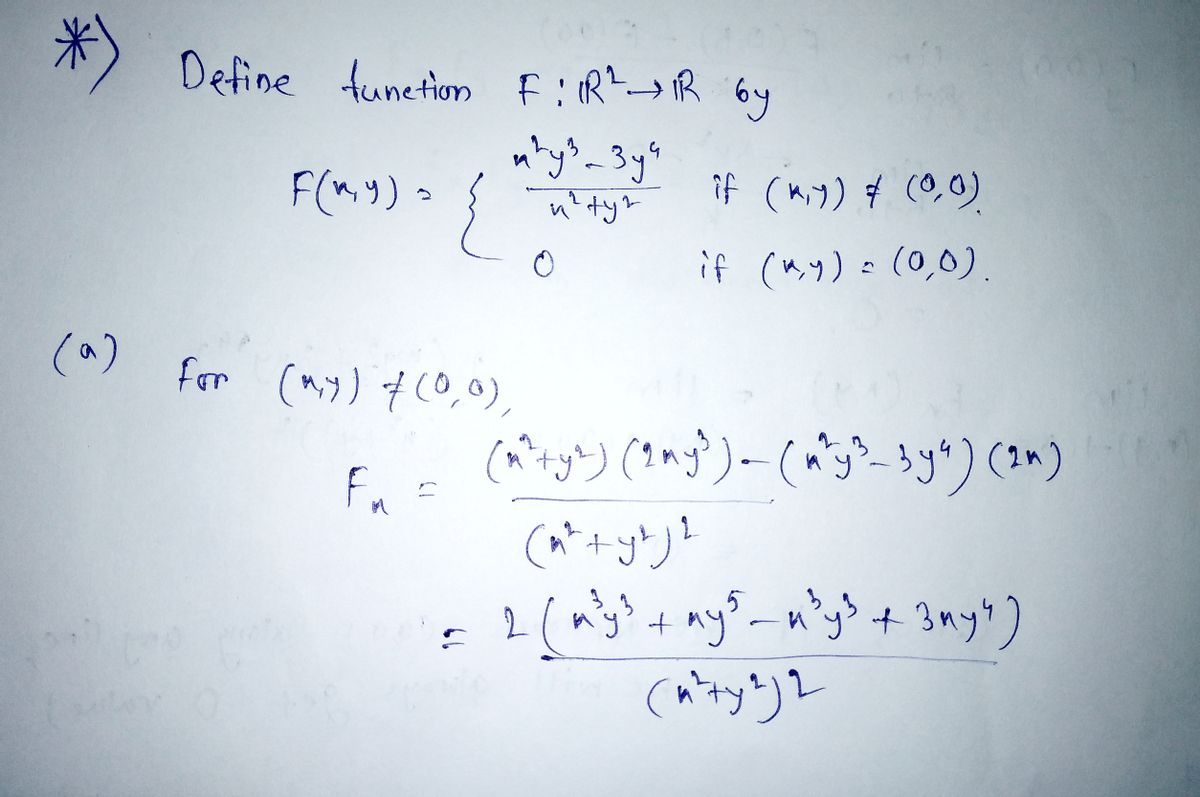 *) Define function F : ℝ² → ℝ by
F(x,y) = { (x²y³ - 3y⁴)/(x²+y²) if (x,y) ≠ (0,0).
0 if (x,y) = (0,0).
(a) For (x,y) ≠ (0,0),
Fx = ((x²+y²)(2xy³) - (x²y³ - 3y⁴)(2x))/(x²+y²)²
= 2(x³y³ + xy⁵ - x³y³ + 3xy⁴)/(x²+y²)2